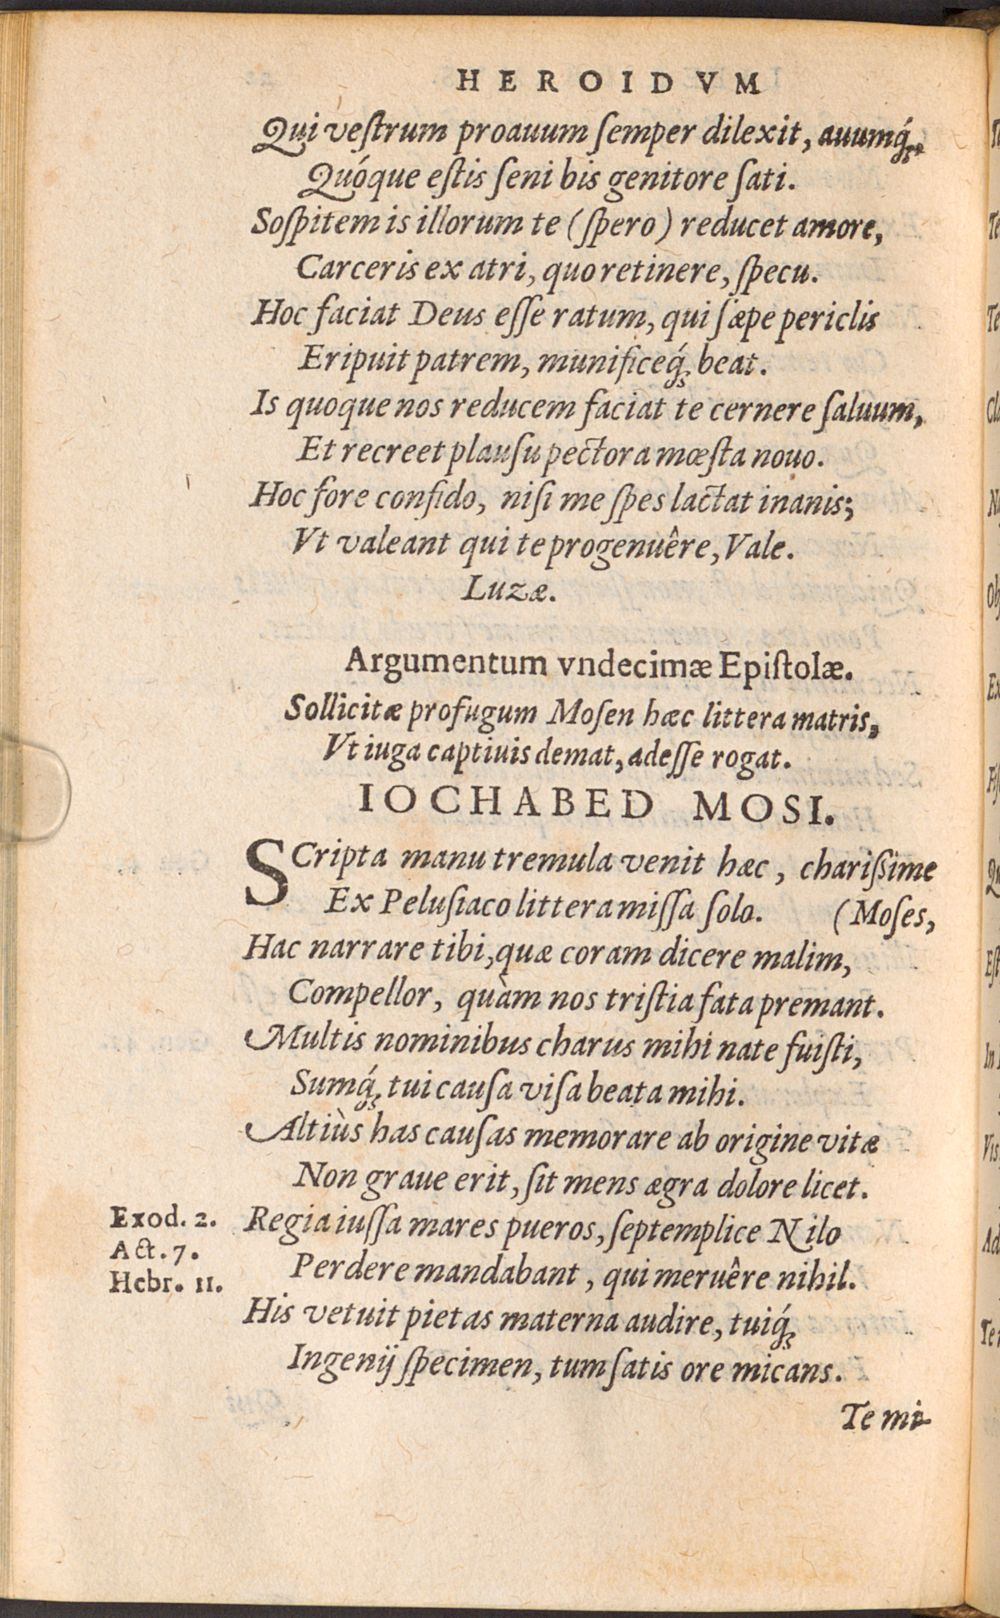 HEROIDVM
Qui veſtrum proauum ſemper dilexit, auumq́;,
Quóque eſtis ſeni bis genitore ſati.
Soſpitem is illorum te (ſpero) reducet amore,
Carceris ex atri, quo retinere, ſpecu.
Hoc faciat Deus eſſe ratum, qui ſæpe periclis
Eripuit patrem, munificeq́; beat.
Is quoque nos reducem faciat te cernere ſaluum,
Et recreet plauſu pectora mœſta nouo.
Hoc fore confido, niſi me ſpes lactat inanis;
Vt valeant qui te progenuêre, Vale.
Luzæ.
Argumentum vndecimæ Epiſtolæ.
Sollicitæ profugum Moſen hæc littera matris,
Vt iuga captiuis demat, adeſſe rogat.
IOCHABED MOSI.
SCripta manu tremula venit hæc, chariſſime
Ex Peluſiaco littera miſſa ſolo. (Moſes,
Hac narrare tibi, quæ coram dicere malim,
Compellor, quàm nos triſtia fata premant.
Multis nominibus charus mihi nate fuiſti,
Sumq́; tui cauſa viſa beata mihi.
Altiùs has cauſas memorare ab origine vitæ
Non graue erit, ſit mens ægra dolore licet.
Exod. 2.
Act. 7.
Hebr. 11.
Regia iuſſa mares pueros, ſeptemplice Nilo
Perdere mandabant, qui meruêre nihil.
His vetuit pietas materna audire, tuiq́;
Ingenij ſpecimen, tum ſatis ore micans.
Te mi-